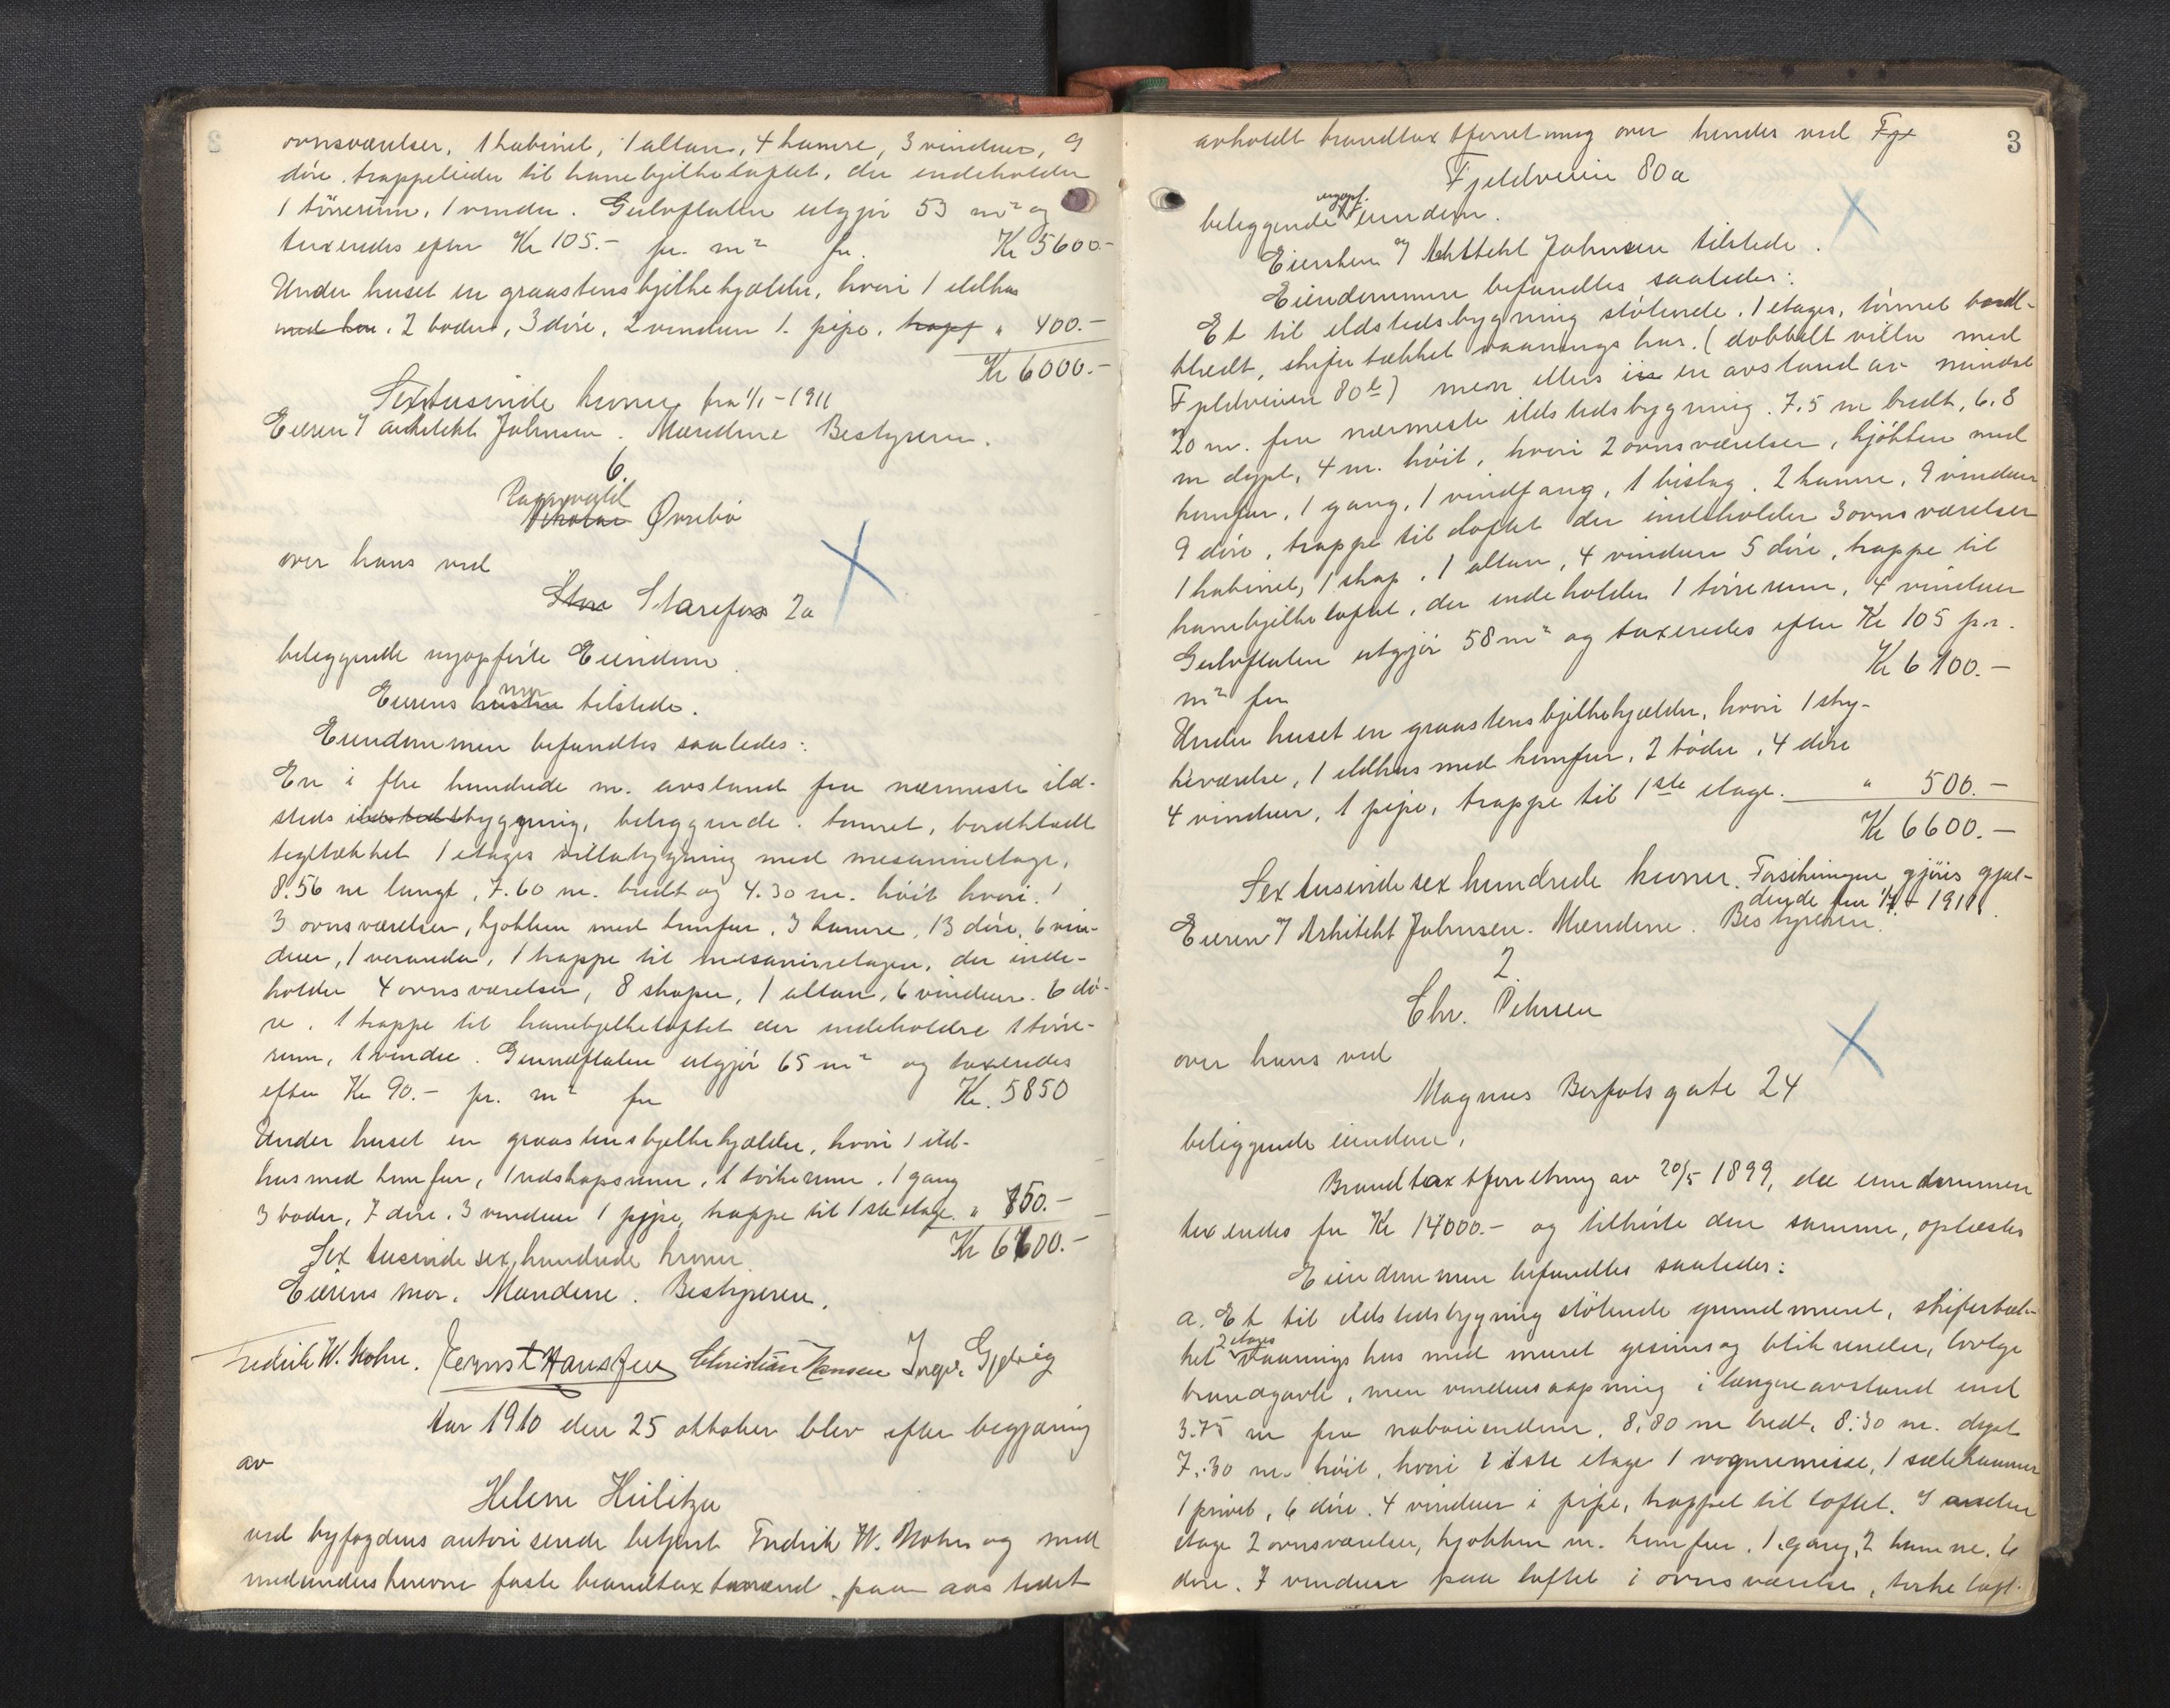 ovnsværelser, 1 kabinet, 1 altan, 4 kamre, 3 vinduer, 9
döre. trappeleider til hanebjelkeloftet, der indeholder
1 törrerum, 1 vindu. Gulvflaten utgjör 53 m² og
taxeredes efter Kr 105.- pr. m² for Kr 5600.-
Under huset en graastens bjelkekjælder, hvori 1 ildhus
med kom. 2 boder, 3 döre, 2 vinduer 1. pipe. trapp " 400.-
Kr 6000.-
Sextusinde kroner fra 1/1-1911
Eieren v/ arkitekt Johnsen. Mændene Bestyreren.
6.
Øvrebö
over hans ved
Store Starefos 2a
beliggende nyopförte Eiendom.
Eierens hustru mor tilstede.
Eiendommen befandtes saaledes:
En i flre hundrede m. avstand fra nærmeste ild-
steds ildstedsbygning, beliggende. tömret, bordklædt
tegltækket 1 etages villabygning med mesaninetage,
8.56 m langt, 7.60 m. bredt og 4.30 m. höit hvori:
3 ovnsværelser, kjökken med komfur. 3 kamre, 13 döre, 6 vin-
duer, 1 veranda, 1 trappe til mesaninetagen, der inde-
holder 4 ovnsværelser, 8 skaper, 1 altan, 6 vinduer. 6 dö-
re. 1 trappe til hanebjelkeloftet der indeholdre 1 törre-
rum, 1 vindu. Grundflaten utgjör 65 m² og taxeredes
efter Kr 90.- pr. m² for Kr. 5850
Under huset en graastensbjelkekjælder, hvori 1 ild-
hus med komfur, 1 redskapsrum, 1 törkerum, 1 gang
3 boder, 7 döre. 3 vinduer 1 pipe, trappe til 1ste etage. " 750.-
Kr 6600.-
Sex tusinde sex hundrede kroner
Eierens mor. Mændene. Bestyreren.
Fredrik W. Mohn. Christian Hansen Gjelvig
Aar 1910 den 25 oktober blev efter begjæring
av
Helene Heilitzu
ved byfogdens autoriserede betjent Fredrik W. Mohn og med
medunderskrevne faste brandtaxtmænd paa aastedet
3
avholdt brandtaxtforretning over hendes ved Fjl
Fjeldveien 80a
beliggende nyopf. eiendom.
Eiersken v/ Arkitekt Johnsen tilstede.
Eiendommen befandtes saaledes:
Et til ildstedsbygning stötende. 1 etages, tömret bord-
klædt, skifertækket vaanings hus. (dobbelt villa med
Fjeldveien 80b) men ellers i en avstand av mindst
20 m. fra nærmeste ildstedsbygning. 7.5 m bredt, 6.8
m dypt, 4 m. höit, hvori 2 ovnsværelser, kjökken med
komfur, 1 gang, 1 vindfang, 1 bislag. 2 kamre, 9 vinduer
9 döre, trappe til loftet der indeholder 3 ovnsværelser
1 kabinet, 1 skap. 1 altan, 4 vinduer 5 döre, trappe til
hanebjelkeloftet, der indeholder 1 törrerum, 4 vinduer
Gulvflaten utgjör 58 m² og taxeredes efter Kr 105 pr.
m² for Kr 6100.-
Under huset en graastensbjelkekjælder, hvori 1 stry-
keværelse, 1 ildhus med komfur, 2 boder, 4 döre
4 vinduer, 1 pipe, trappe til 1ste etage. " 500.-
Kr 6600.-
Sex tusinde sex hundrede kroner. Forsikringen gjöres gjæl-
dende fra 1/1 - 1911.
Eieren v/ Arkitekt Johnsen. Mændene. Bestyreren.
2.
Chr. Petersen
over hans ved
Magnus Barfots gate 24
beliggende eiendom.
Brandtaxtforretning av 20/5 1899, da eiendommen
taxeredes for Kr 14000.- og tilhörte den samme, oplæstes
Eiendommen befandtes saaledes:
a. Et til ildstedsbygning stötende grundmuret, skifertæk-
ket 2 etages vaaningshus med muret gesims og blik render, lovlige
brandgavle, men vinduesaapning i længere avstand end
3.75 m fra naboeiendom. 8,80 m bredt, 8.30 m. dypt
7.30 m. höit, hvori i 1ste etage 1 vognremisse, 1 sælekammer
1 privet, 6 döre. 4 vinduer 1 pipe, trappe til loftet. I anden
etage 2 ovnsværelser, kjökken m. komfur. 1 gang, 2 kamre, 6
döre. 7 vinduer paa loftet 1 ovnsværelse, törkeloft.